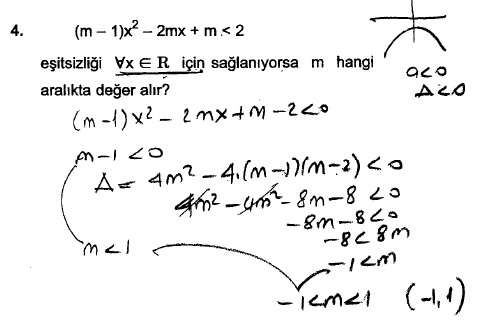 4. (m – 1)x² – 2mx + m < 2
eşitsizliği ∀x ∈ R için sağlanıyorsa m hangi
aralıkta değer alır?
a<0
Δ<0
(m-1)x² - 2mx+m-2<0
m-1<0
Δ= 4m² - 4.(m-1)(m-2) < 0
4m² - 4m² - 8m - 8 < 0
-8m-8<0
-8<8m
-1<m
m<1
-1<m<1 (-1,1)